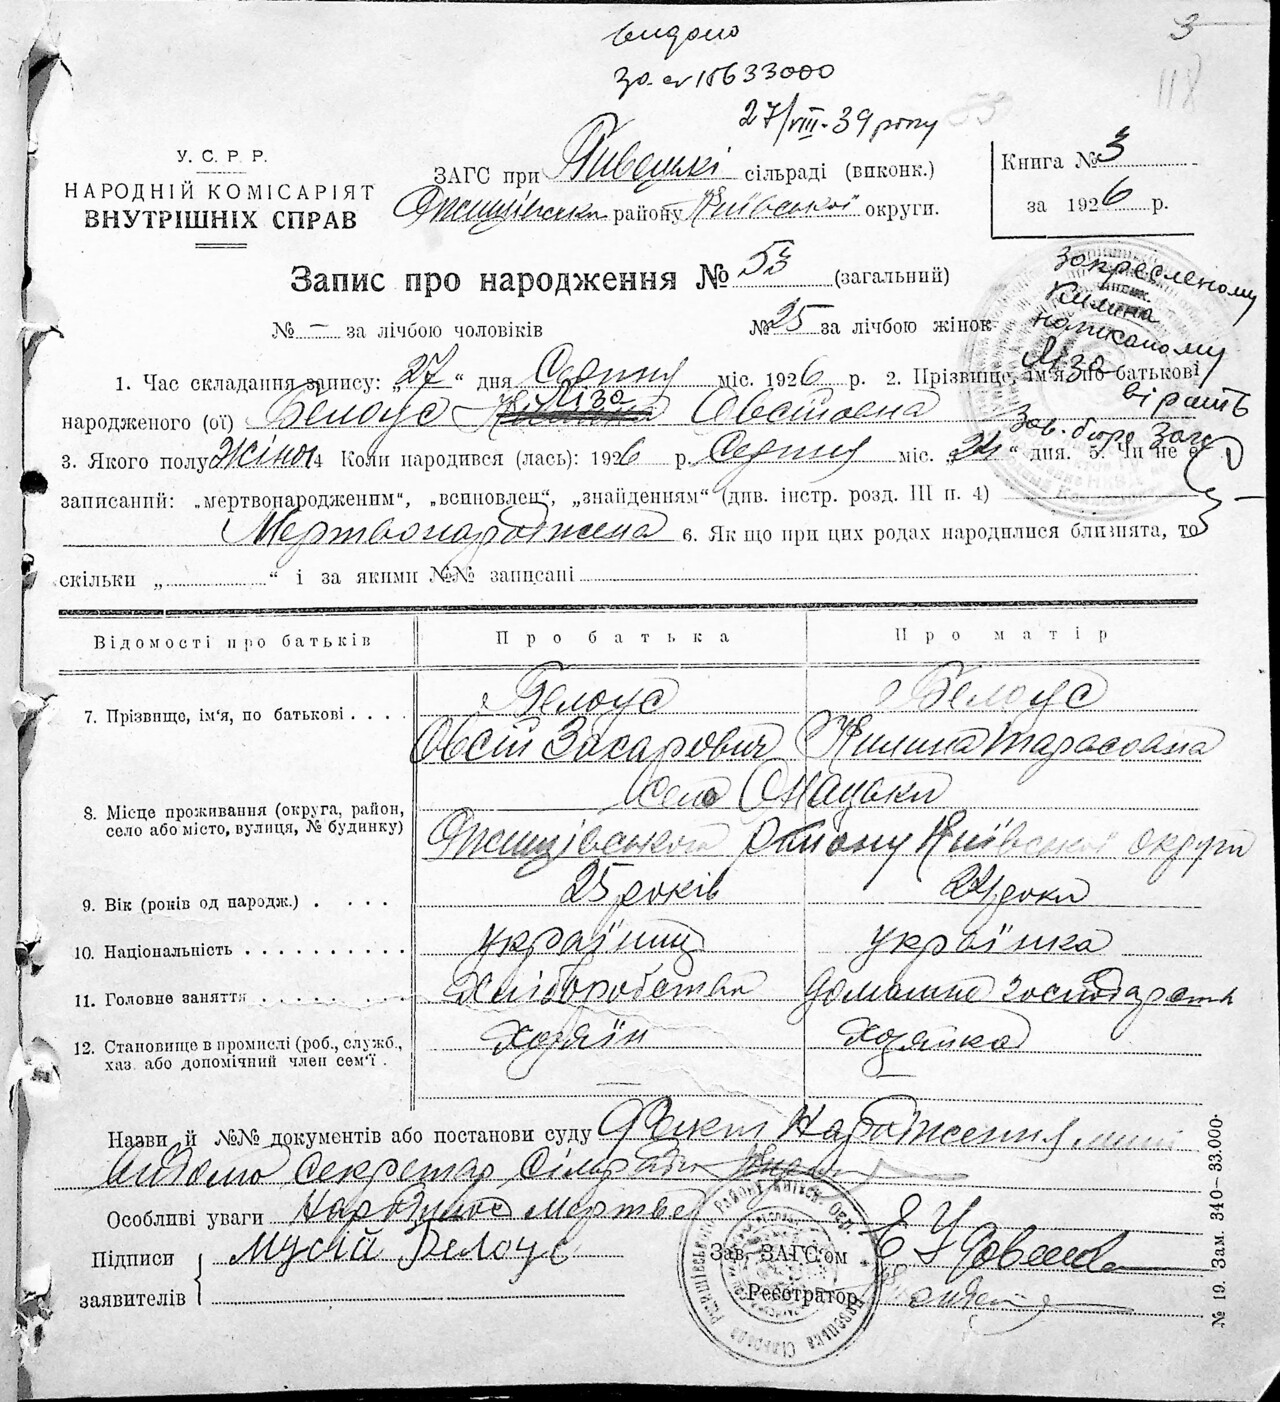 видано
27/VIII-39 року
3
118
У. С. Р. Р.
НАРОДНІЙ КОМІСАРІЯТ
ВНУТРІШНІХ СПРАВ
ЗАГС при Пивецькі сільраді (виконк.)
району Київської округи.
Книга № 3
за 1926 р.
Запис про народження № 53 (загальний)
№ – за лічбою чоловіків № 25 за лічбою жінок
Закресленому
Килина
написаному
Ліза
вірить
Зав. бюро Загс
1. Час складання запису: „27“ дня Серпня міс. 1926 р. 2. Прізвище, ім'я, по батькові
народженого (ої) Белоус Ліза Овсіївна
3. Якого полу Жіноч 4 Коли народився (лась): 1926 р. Серпня міс. „24“ дня. 5. Чи не є
записаний: „мертвонародженим“, „всиновлен“, „знайденням“ (див. інстр. розд. III п. 4)
Мертвонароджена 6. Як що при цих родах народилися близнята, то
скільки „ “ і за якими №№ записані
Відомості про батьків Про батька Про матір
7. Прізвище, ім'я, по батькові . . . . Белоус Белоус
Овсій Захарович Килина Тарасовна
село Онацьки
8. Місце проживання (округа, район,
село або місто, вулиця, № будинку)
району Київської округи
9. Вік (років од народж.) . . . . 25 років 24 роки
10. Національність . . . . . . . . . . українець українка
11. Головне заняття . . . . . . . . Хліборобство домашнє господарств
12. Становище в промислі (роб., служб.,
хаз. або допомічний член сем'ї . Хозяїн Хозяйка
Назви й №№ документів або постанови суду Факт Народження мині
відомо секретар Сільради
Особливі уваги Народилось мертве
Підписи Мусій Белоус Зав. ЗАГС'ом
заявителів Реєстратор
№ 19. Зам. 340–33.000.